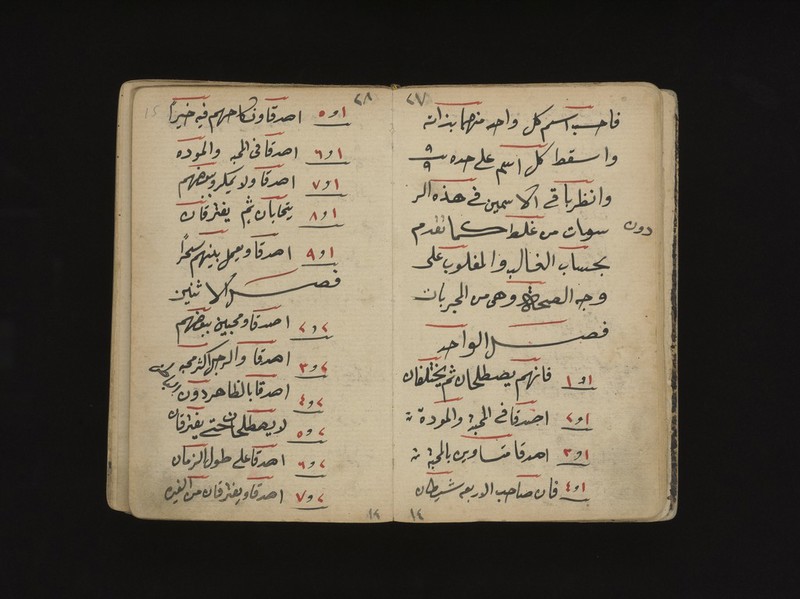 ٢٧
فاحسب اسم كل واحد منهما بذاته
واسقط كل اسم على حده ٩ ٩
وانظر باقي الاسمين في هذه الر
سومات من غلط كما تقدم
دون
بحساب الغالب والمغلوب على
وجه الصحة وهى من المجربات
فصل الواحد
١و١ فانهم يصطلحان ثم يختلفان
١و٢ اصدقا في المحبة والمودة
١و٣ اصدقا متساوين بالمحبة
١و٤ فان صاحب الاربعه شيطان
١٤
٢٨
15
١و٥ اصدقا ونكاحهم فيه خيرا
١و٦ اصدقا في المحبه والموده
١و٧ اصدقا ولا يمكر وبعضهم
١و٨ يتحابان ثم يفترقان
١و٩ اصدقا ويعمل بينهم سحرا
فصل الاثنين
٢و٢ اصدقا ومحبين ببعضهم
٢و٣ اصدقا والرجل اكثر محبه
٢و٤ اصدقا بالظاهر دون
٢و٥ لا يصطلحان حتى يفترقان
٢و٦ اصدقا على طول الزمان
٢و٧ اصدقا ويفترقان من الغيره
١٤